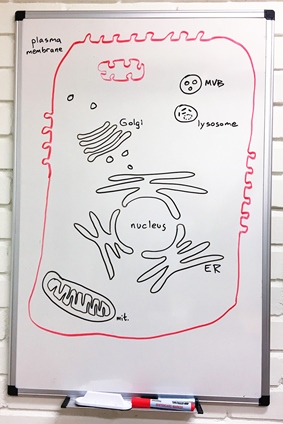 plasma
membrane
MVB
lysosome
Golgi
nucleus
ER
mit.